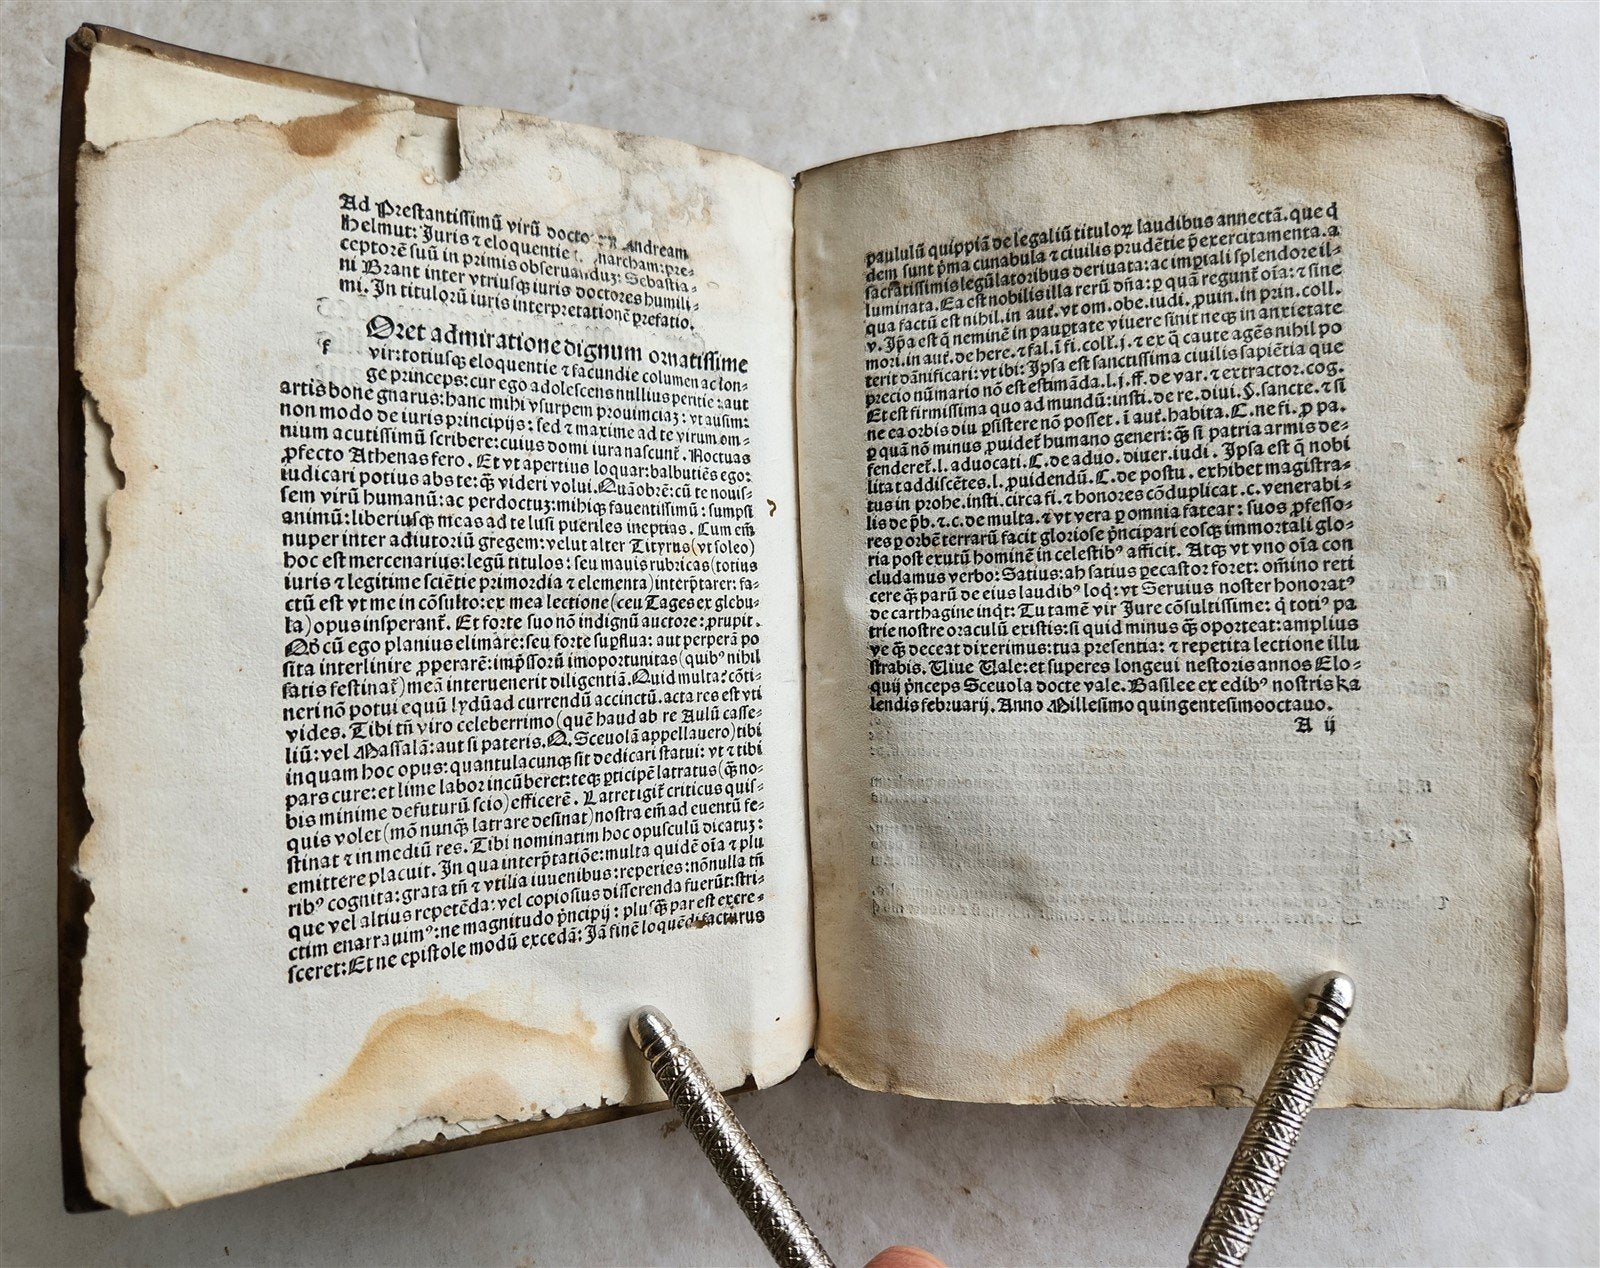 Ad Prestantissimū virū docto Andream
Helmut: Juris ⁊ eloquentie narcham: pre-
ceptorē suū in primis obseruanduꝫ: Sebastia-
ni Brant inter vtriusqꝫ iuris doctores humili-
mi. In titulorū iuris interpretationē p̱refatio.
f
Oret admiratione dignum ornatissime
vir: totiusqꝫ eloquentie ⁊ facundie columen ac lon-
ge princeps: cur ego adolescens nullius peritie: aut
artis bone gnarus: hanc mihi vsurpem prouinciaꝫ: vt ausim:
non modo de iuris principijs: sed ⁊ maxime ad te virum om-
nium acutissimū scribere: cuius domi iura nascunt᷑. Noctuas
ꝓfecto Athenas fero. Et vt apertius loquar: balbutiēs ego:
iudicari potius abs te: qꝫ̄ videri volui. Quāobrē: cū te nouis-
sem virū humanū: ac perdoctuꝫ: mihiqꝫ fauentissimū: sumpsi
animū: liberiusqꝫ meas ad te lusi pueriles ineptias. Cum em̄
nuper inter adiutoriū gregem: velut alter Tityrus (vt soleo)
hoc est mercenarius: legū titulos: seu mauis rubricas (totius
iuris ⁊ legitime sciētie primordia ⁊ elementa) interp̄tarer: fa-
ctū est vt me in cōsulto: ex mea lectione (ceu Tages ex glebu-
la) opus insperant᷑. Et forte suo nō indignū auctore: prupit.
Qḋ cū ego planius elimare: seu forte suꝑflua: aut perperā po
sita interlinire ꝓperarē: imp̄ssorū imoportunitas (quibꝰ nihil
satis festinat᷑) meā interuenerit diligentiā. Quid multa? cōti-
neri nō potui equū lydū ad currendū accinctū. acta res est vti
vides. Tibi tn̄ viro celeberrimo (quē haud ab re Aulū casse-
liū: vel Massalā: aut si pateris. Q. Sceuolā appellauero) tibi
inquam hoc opus: quantulacunqꝫ sit dedicari statui: vt ⁊ tibi
pars cure: et lime labor incūberet: teqꝫ ꝑticipē latratus (qꝫ̄ no-
bis minime defuturū scio) efficerē. Latret igit᷑ criticus quis-
quis volet (mō nunqꝫ̄ latrare desinat) nostra em̄ ad euentū fe-
stinat ⁊ in mediū res. Tibi nominatim hoc opusculū dicatuꝫ:
emittere placuit. In qua interp̄tatiōe: multa quidē oīa ⁊ plu
ribꝰ cognita: grata tn̄ ⁊ vtilia iuuenibus: reperies: nōnulla tn̄
que vel altius repetēda: vel copiosius differenda fuerūt: stri-
ctim enarrauimꝰ: ne magnitudo p̄ncipij: plusqꝫ̄ par est excre-
sceret: Et ne epistole modū excedā: Jā finē loquēdi facturus
paululū quippiā de legaliū titulorꝝ laudibus annectā. que q̇
dem sunt p̄ma cunabula ⁊ ciuilis prudētie p̄exercitamenta. a
sacratissimis legūlatoribus deriuata: ac imꝑiali splendore il-
luminata. Ea est nobilis illa rerū dn̄a: ꝑ quā regunt᷑ oīa: ⁊ sine
qua factū est nihil. in aut᷑. vt om. obe. iudi. ꝓuin. in prin. coll.
v. Ip̄a est q̄ neminē in pauꝑtate viuere sinit neqꝫ in anxietate
mori. in aut᷑. de here. ⁊ fal. ī fi. coll. j. ⁊ ex q̄ caute agēs nihil po
terit dānificari: vt ibi: Ipsa est sanctissima ciuilis sapiētia que
precio nūmario nō est estimāda. l. j. ff. de var. ⁊ extractor. cog.
Et est firmissima quo ad mundū: insti. de re. diui. §. sancte. ⁊ si
ne ea orbis diu ꝑsistere nō posset. ī aut᷑. habita. C. ne fi. ꝓ pa.
ꝑ quā nō minus ꝓuidet᷑ humano generi: qꝫ̄ si patria armis de-
fenderet᷑. l. aduocati. C. de aduo. diuer. iudi. Ipsa est q̄ nobi
litat addiscētes. l. ꝓuidendū. C. de postu. exhibet magistra-
tus in prohe. insti. circa fi. ⁊ honores cōduplicat. c. venerabi-
lis de p̄b. ⁊. c. de multa. ⁊ vt vera ꝑ omnia fatear: suos ꝓfesso-
res ꝑ orbē terrarū facit gloriose p̄ncipari eosqꝫ immortali glo-
ria post exutū hominē in celestibꝰ afficit. Atqꝫ vt vno oīa con
cludamus verbo: Satius: ah satius ꝑecastor foret: om̄ino reti
cere qꝫ̄ parū de eius laudibꝰ loq̇: vt Seruius noster honoratꝰ
de carthagine inq̇t: Tu tamē vir Jure cōsultissime: q̇ totiꝰ pa
trie nostre oraculū existis: si quid minus qꝫ̄ oporteat: amplius
ve qꝫ̄ deceat dixerimus: tua presentia: ⁊ repetita lectione illu
strabis. Viue Vale: et superes longeui nestoris annos Elo-
quij p̄nceps Sceuola docte vale. Basilee ex edibꝰ nostris ka
lendis februarij. Anno Millesimo quingentesimooctauo.
A ij